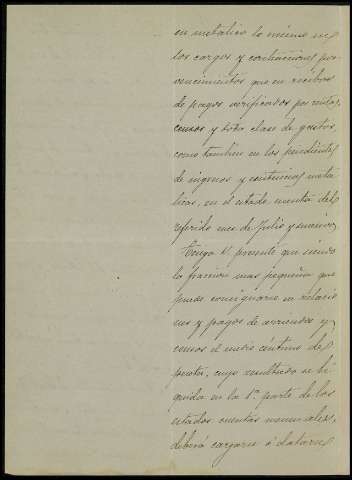 en metálico lo mismo en
los cargos y contracciones por
vencimientos que en recibos
de pagos verificados por rentas,
censos y toda clase de gastos
como tambien en los pendientes
de ingreso y existencias metá-
licas, en el estado cuenta del
referido mes de Julio y sucesivos
Tenga V. presente que siendo
la fraccion mas pequeña que
puede consignarse en relacio-
nes y pagos de arriendos y
censos el medio céntimo de
peseta, cuyo resultado se li-
quida en la 1ª parte de los
estados cuentas mensuales,
deberá cargarse ó datarse